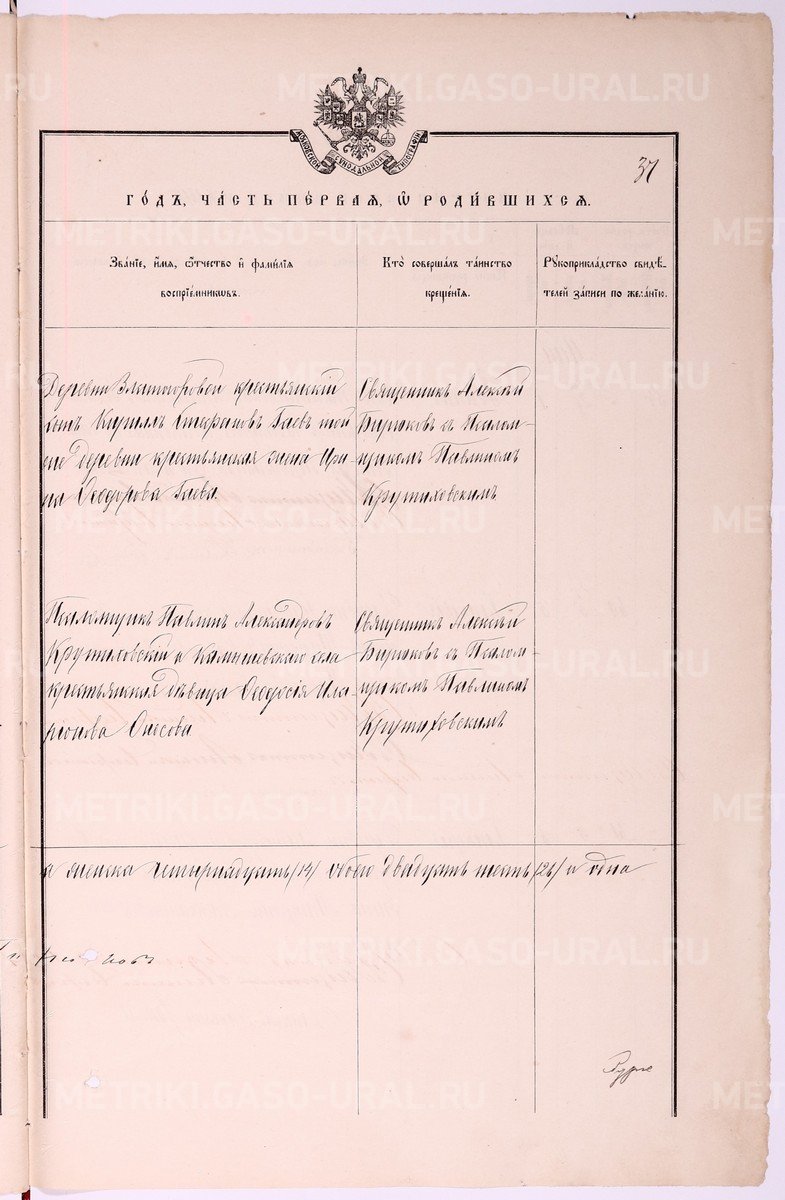 METRIKI.GASO-URAL.RU
МОСКОВСКОЙ СѴНОДАЛЬНОЙ ТИПОГРАФІИ
37
ГО́ДЪ, ЧА́СТЬ ПЕ́РВАѦ, Ѡ҆ РОДИ́ВШИХСѦ.
Зва́нїе, и҆́мѧ, ѻ҆́тчество и҆ фамилїѧ
воспрїе́мникѡвъ.
Кто̀ соверша́лъ та́инство
креще́нїѧ.
Рꙋкоприкла́дство свидѣ́-
телей за́писи по жела́нїю.
Деревни Златогоровой крестьянскій
сынъ Кириллъ Стефановъ Гаевъ той
же деревни крестьянская жена Ири-
на Ѳеодорова Гаева
Священникъ Алексѣй
Бирюковъ съ Псалом-
щикомъ Павлиномъ
Крутиховскимъ
Псаломщикъ Павлинъ Александровъ
Крутиховскій и Камышевского села
крестьянская дѣвица Ѳеодосія Ила-
ріонова
Священникъ Алексѣй
Бирюковъ съ Псалом-
щикомъ Павлиномъ
Крутиховскимъ
а женска четырнадцать /14/ обоего двадцать шесть /26/ и одна